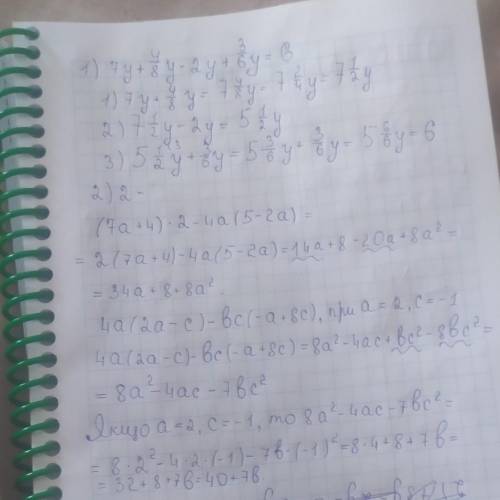 1) 7y + 4/8 y - 2y + 3/6 y = 6
1) 7y + 4/8 y = 7 4/8 y = 7 2/4 y = 7 1/2 y
2) 7 1/2 y - 2y = 5 1/2 y
3) 5 1/2 y + 3/6 y = 5 3/6 y + 3/6 y = 5 6/6 y = 6
2) 2 -
(7a+4)·2-4a(5-2a)=
= 2(7a+4)-4a(5-2a)=14a+8-20a+8a²=
= 34a+8+8a².
4a(2a-c)-вc(-a+8c), при a=2, c=-1
4a(2a-c)-вc(-a+8c)=8a²-4ac+вc²-8вc²=
= 8a²-4ac-7вc²
Якщо a=2, c=-1, то 8a²-4ac-7вc²=
= 8·2²-4·2·(-1)-7в·(-1)²=8·4+8+7в=
= 32+8+7в=40+7в.